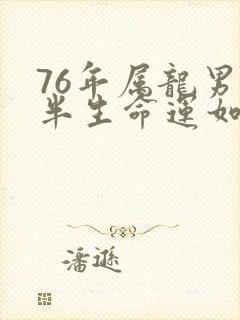 76年属龍男
半生命运如
潘遜